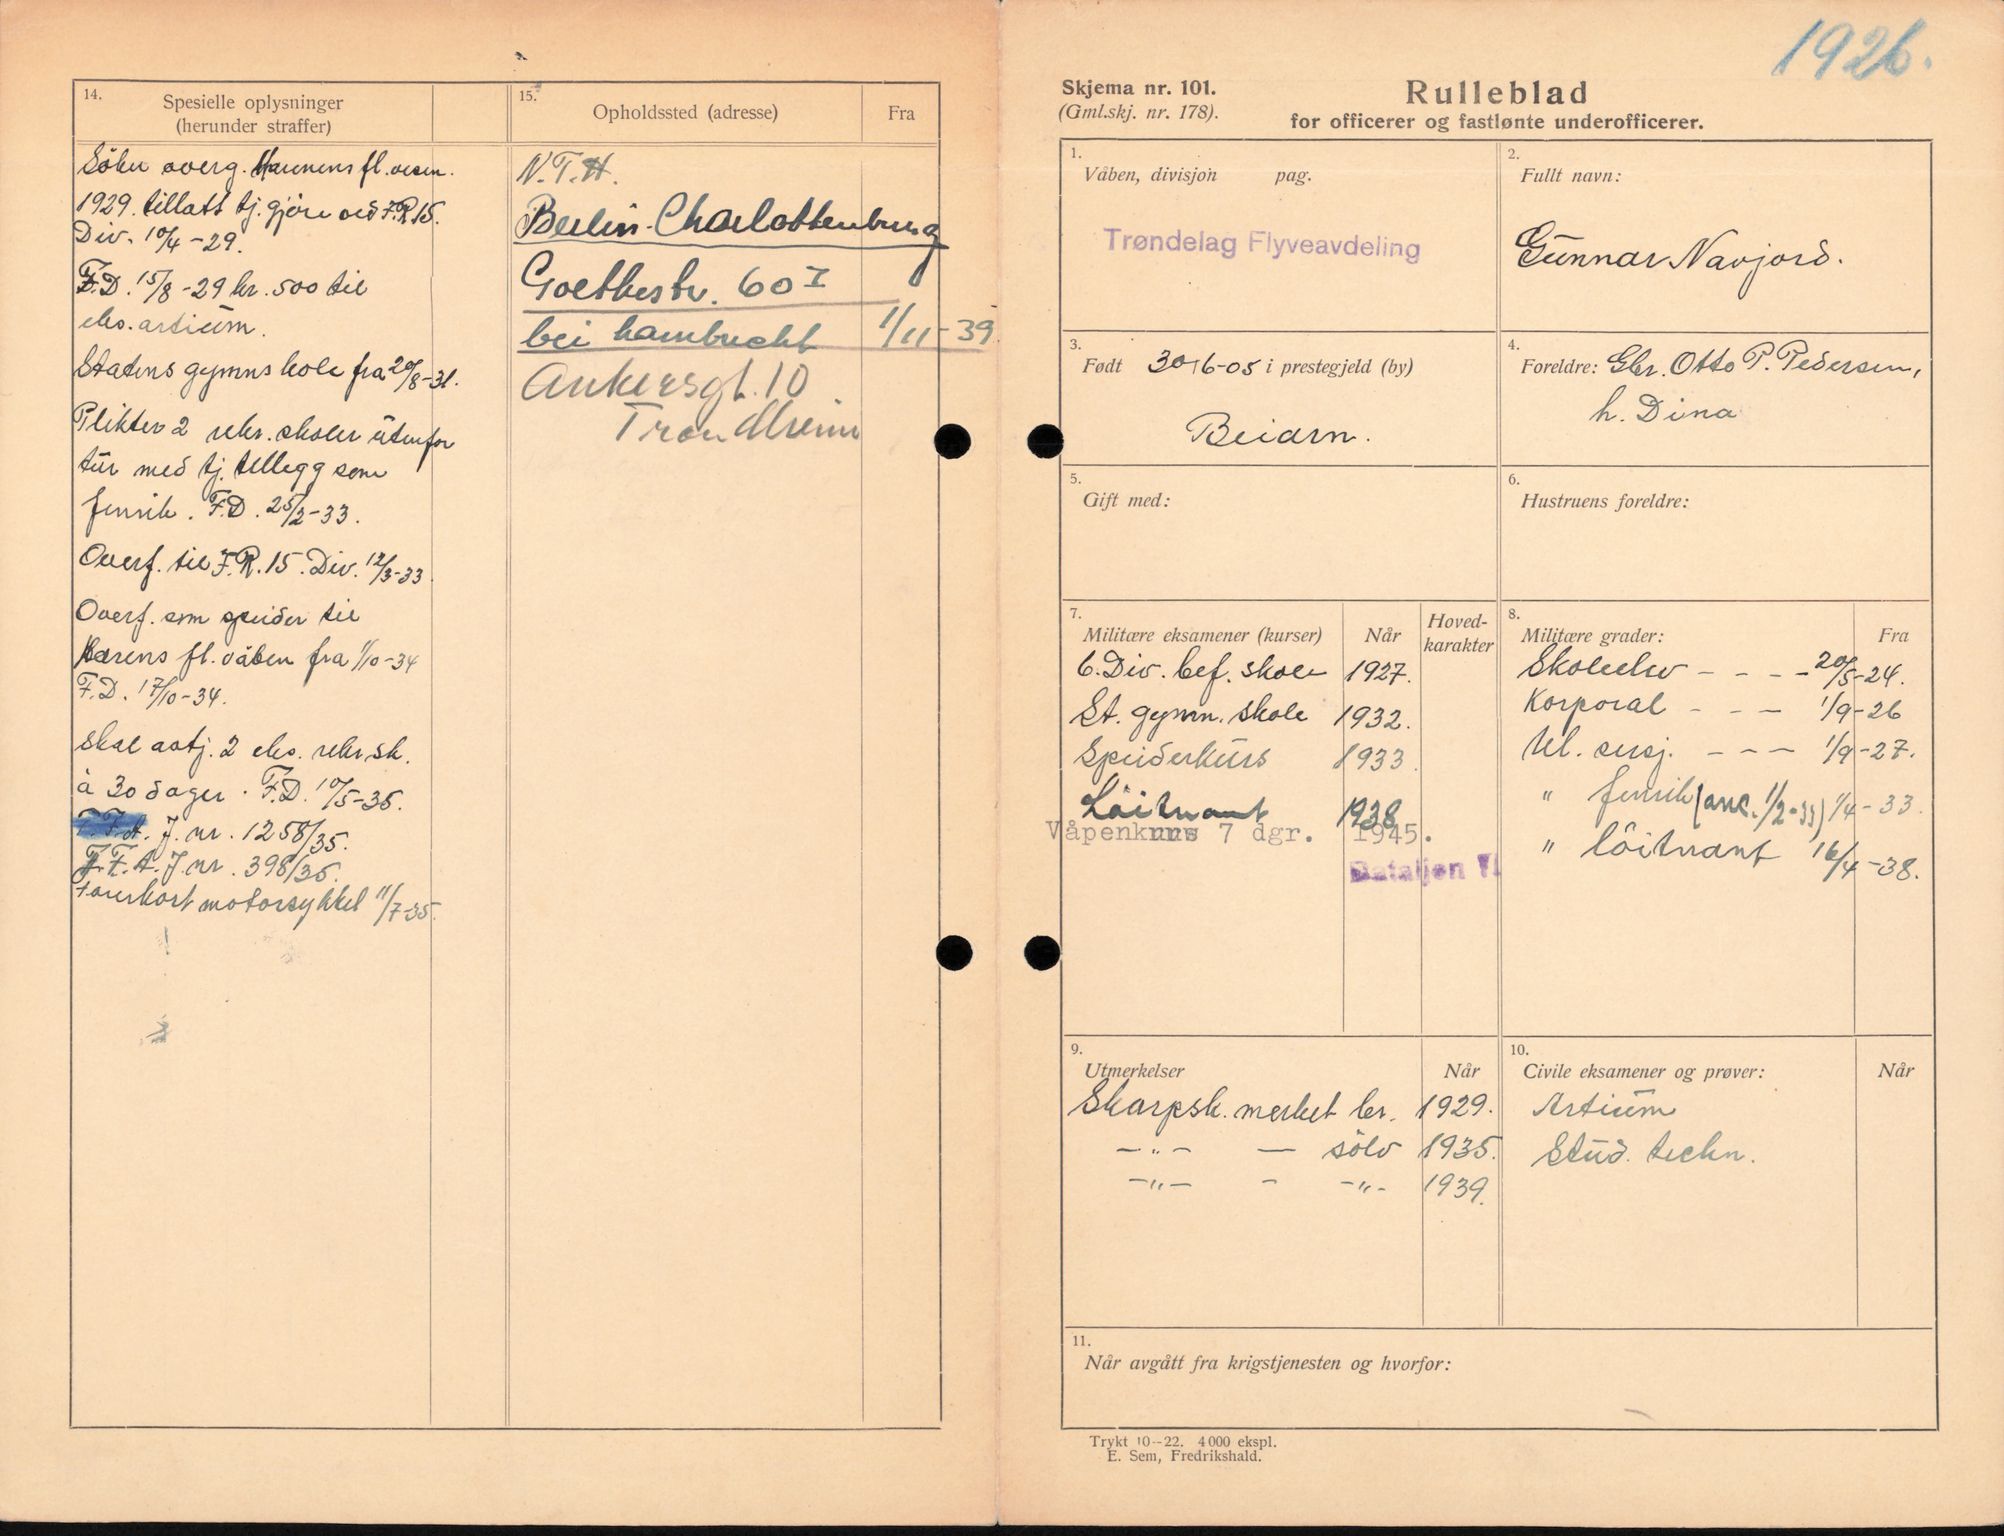 14.
Spesielle oplysninger
(herunder straffer)
Söker overg. Hærens fl. vesen.
1929. tillatt tj. gjøre ved I.R.15.
Div. 10/4-29.
F.D. 15/8-29 kr. 500 til
eks. artium.
Statens gymnskole fra 20/8-31.
Plikter 2 rekr. skoler utenfor
tur med tj. tillegg som
fenrik. F.D. 25/2-33.
Overf. til I.R.15. Div. 12/3-33
Overf. som speider til
Hærens fl. våben fra 1/10-34
F.D. 17/10-34.
skal avtj. 2 eks. rekr.sk.
à 30 dager. F.D. 10/5-35.
T.F.A. J. nr. 1258/35.
T.F.A. J. nr. 398/35.
Førerkort motorsykkel 11/7-35.
15.
Opholdssted (adresse)
Fra
N.T.H.
Berlin-Charlottenburg
Goethestr. 60 I
bei 1/11-39.
Ankersgt. 10
Trondheim
1926.
Skjema nr. 101.
(Gml.skj. nr. 178).
Rulleblad
for officerer og fastlønte underofficerer.
1.
Våben, divisjon pag.
Trøndelag Flyveavdeling
2.
Fullt navn:
Gunnar Navjord.
3.
Født 30/6-05 i prestegjeld (by)
Beiarn.
4.
Foreldre: Gbr. Otto P. Pedersen,
h. Dina
5.
Gift med:
6.
Hustruens foreldre:
7.
Militære eksamener (kurser)
Når
Hoved-
karakter
6. Div. bef. skole 1927.
St. gymn. skole 1932.
Speiderkurs 1933.
Löitnant 1938
Våpenkurs 7 dgr. 1945.
Bataljon
8.
Militære grader:
Fra
Skoleelev - - - - 20/5-24.
Korporal - - - 1/9-26
Ul. sersj. - - - 1/9-27.
" fenrik (anc. 1/2-33) 1/4-33.
" löitnant 16/4-38.
9.
Utmerkelser
Når
Skarpsk. merket br. 1929.
-"- - sölv 1935.
-"- - -"- 1939.
10.
Civile eksamener og prøver:
Når
Artium
Stud. techn.
11.
Når avgått fra krigstjenesten og hvorfor:
Trykt 10--22. 4000 ekspl.
E. Sem, Fredrikshald.